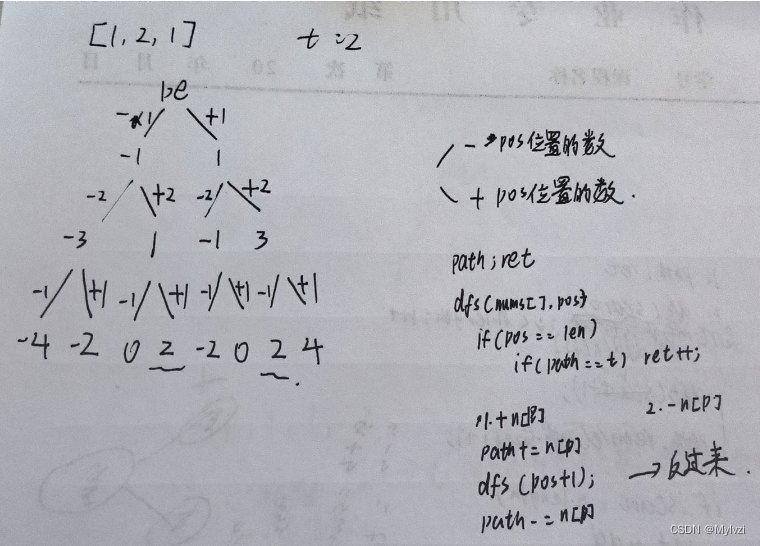 [1, 2, 1] t=2
-1 +1
-1 1
-2 +2 -2 +2
-3 1 -1 3
-1 +1 -1 +1 -1 +1 -1 +1
-4 -2 0 2 -2 0 2 4
- pos位置的数
+ pos位置的数.
path; ret
dfs(nums[], pos)
if(pos == len)
if(path == t) ret++;
1. + n[p]
path += n[p]
dfs(pos+1);
path -= n[p]
2. - n[p]
→反过来.
CSDN @Mylvzi